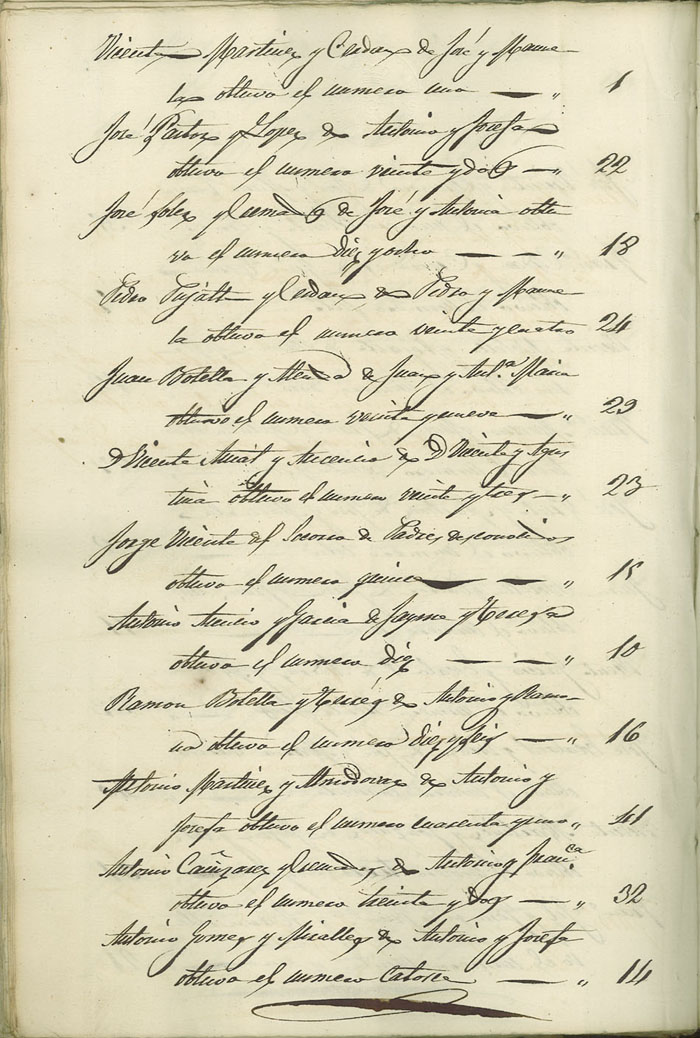 Vicente Martinez y Cerdan de José y Manue-
la obtuvo el numero uno — „ 1
José Pastor y Lopez de Antonio y Josefa
obtuvo el numero veinte y dos — „ 22
José Soler y Cremades de José y Antonia obtu
vo el numero diez y ocho — — „ 18
Pedro Pujalte y Cerdan de Pedro y Manue-
la obtuvo el numero veinte y cuatro 24
Juan Botella y de Juan y Ant.ª Maria
obtuvo el numero veinte y nueve — „ 29
D Vicente y Asencio de D Vicente y Agus
tina obtuvo el numero veinte y tres — „ 23
Jorge Vicente del Socorro de Padres desconocidos
obtuvo el numero quince — — „ 15
Antonio Asencio y Garcia de Jayme y Teresa
obtuvo el numero diez — — „ 10
Ramon Botella y de Antonio y Ramo-
na obtuvo el numero diez y seis — „ 16
Antonio Martinez y Almodovar de Antonio y
Josefa obtuvo el numero cuarenta y uno „ 41
Antonio Cañizares y Cremades de Antonio y Fran.ca
obtuvo el numero treinta y dos — „ 32
Antonio Gomez y Miralles de Antonio y Josefa
obtuvo el numero Catorce — „ 14